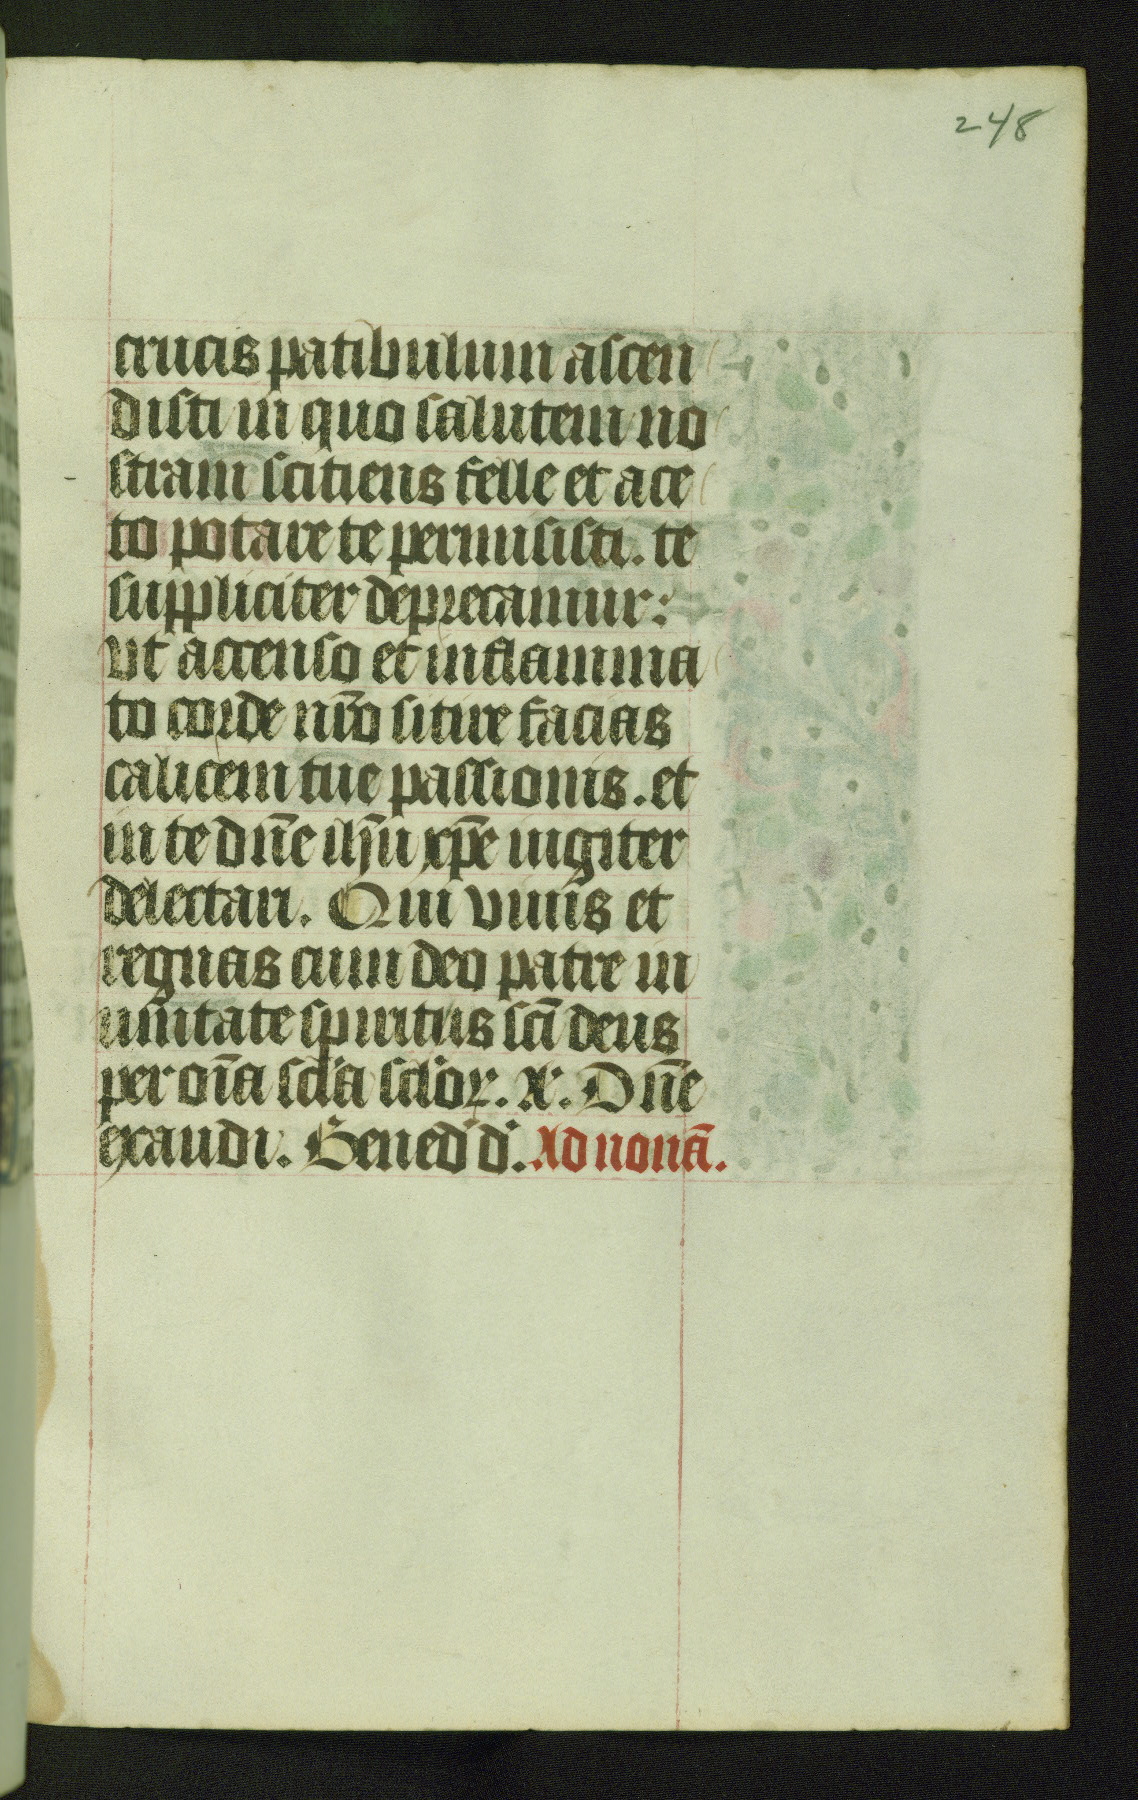 248
crucis patibulum ascen
disti in quo salutem no
stram scitiens felle et ace
to potare te permisisti. te
suppliciter deprecamur:
vt accenso et inflamma
to corde nr̄o sitire facias
calicem tue passionis. et
in te dn̄e ih̄u xp̄e iugiter
delectari. Qui viuis et
regnas cum deo patre in
unitate spiritus sc̄i deus
per om̄ia sc̄la sc̄loꝝ. R. Dn̄e
exaudi. Bened̄ d̄. Ad nonā.